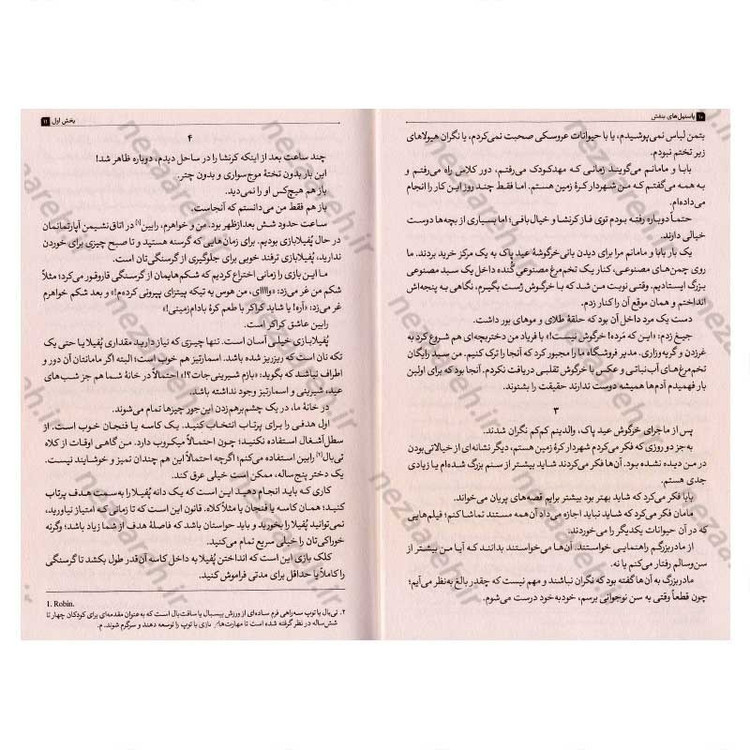 ۱۰ پاستیل‌های بنفش
یتمن لباس نمی‌پوشیدم، یا با حیوانات عروسکی صحبت نمی‌کردم، یا نگران هیولاهای
زیر تختم نبودم.
بابا و مامانم می‌گویند زمانی که مهدکودک می‌رفتم، دور کلاس راه می‌رفتم و
به همه می‌گفتم که من شهردار کرهٔ زمین هستم. اما فقط چند روز این کار را انجام
می‌داده‌ام.
حتماً دوباره رفته بودم توی فاز کرنشا و خیال‌بافی؛ اما بسیاری از بچه‌ها دوست
خیالی دارند.
یک بار بابا و مامانم مرا برای دیدن بانی خرگوشهٔ عید پاک به یک مرکز خرید بردند. ما
روی چمن‌های مصنوعی، کنار یک تخم‌مرغ مصنوعی گُنده داخل یک سبد مصنوعی
بزرگ ایستادیم. وقتی نوبت من شد که با خرگوش ژست بگیرم، نگاهی به پنجه‌اش
انداختم و همان موقع آن را کنار زدم.
دست یک مرد داخل آن بود که حلقهٔ طلای و موهای بور داشت.
جیغ زدم: «این که مَرده! خرگوش نیست!» با فریاد من دختربچه‌ای هم شروع کرد به
غرزدن و گریه‌وزاری. مدیر فروشگاه ما را مجبور کرد که آنجا را ترک کنیم. من سبد رایگان
تخم‌مرغ‌های آب‌نباتی و عکس با خرگوش تقلبی دریافت نکردم. آنجا بود که برای اولین
بار فهمیدم آدم‌ها همیشه دوست ندارند حقیقت را بشنوند.
۳
پس از ماجرای خرگوش عید پاک، والدینم کم‌کم نگران شدند.
به‌جز دو روزی که فکر می‌کردم شهردار کرهٔ زمین هستم، دیگر نشانه‌ای از خیالاتی‌بودن
در من دیده نشده بود. آن‌ها فکر می‌کردند شاید بیشتر از سنم بزرگ شده‌ام یا زیادی
جدی هستم.
بابا فکر می‌کرد که شاید بهتر بود بیشتر برایم قصه‌های پریان می‌خواند.
مامان فکر می‌کرد که شاید نباید اجازه می‌داد آن‌همه مستند تماشا کنم؛ فیلم‌هایی
که در آن حیوانات یکدیگر را می‌خوردند.
از مادربزرگم راهنمایی خواستند. آن‌ها می‌خواستند بدانند که آیا من بیشتر از
سن‌وسالم رفتار می‌کنم یا نه.
مادربزرگ به آن‌ها گفته بود که نگران نباشند و مهم نیست که چقدر بالغ به‌نظر می‌آیم؛
چون قطعاً وقتی به سن نوجوانی برسم، خودبه‌خود درست می‌شوم.
بخش اول ۱۱
۴
چند ساعت بعد از اینکه کرنشا را در ساحل دیدم، دوباره ظاهر شد!
این‌بار بدون تختهٔ موج‌سواری و بدون چتر.
باز هم هیچ‌کس او را نمی‌دید.
باز هم فقط من می‌دانستم که آنجاست.
ساعت حدود شش بعدازظهر بود. من و خواهرم، رابین[۱] در اتاق‌نشیمن آپارتمانمان
در حال پُفیلابازی بودیم. برای زمان‌هایی که گرسنه هستید و تا صبح چیزی برای خوردن
ندارید، پُفیلابازی ترفند خوبی برای جلوگیری از گرسنگی‌تان است.
ما این بازی را زمانی اختراع کردیم که شکم‌هایمان از گرسنگی قاروقور می‌کرد؛ مثلاً
شکم من غر می‌زد: «وااااای، من هوس یه تیکه پیتزای پپرونی کرده‌م!» و بعد شکم خواهرم
غر می‌زد: «آره! یا شاید کراکر با طعم کرهٔ بادام‌زمینی!»
رابین عاشق کراکر است.
پُفیلابازی خیلی آسان است. تنها چیزی که نیاز دارید مقداری پُفیلا یا حتی یک
تکه نان است که ریزریز شده باشد. اسمارتیز هم خوب است؛ البته اگر مامانتان آن دور و
اطراف نباشد که بگوید: «بازم شیرینی‌جات؟!» احتمالاً در خانهٔ شما هم جز شب‌های
عید، شیرینی و اسمارتیز وجود نداشته باشد.
در خانهٔ ما، در یک چشم‌برهم‌زدن این‌جور چیزها تمام می‌شوند.
اول هدفی را برای پرتاب انتخاب کنید. یک کاسه یا فنجان خوب است. از
سطل آشغال استفاده نکنید؛ چون احتمالاً میکروب دارد. من گاهی اوقات از کلاه
تی‌بال[۲] رابین استفاده می‌کنم؛ اگرچه احتمالاً این هم چندان تمیز و خوشایند نیست.
یک دختر پنج‌ساله، ممکن است خیلی عرق کند.
کاری که باید انجام دهید این است که یک دانه پُفیلا را به‌سمت هدف پرتاب
کنید؛ همان کاسه یا فنجان یا مثلاً کلاه. قانون این است که تا زمانی که امتیاز نیاورید،
نمی‌توانید پُفیلا را بخورید و باید حواستان باشد که فاصلهٔ هدف از شما زیاد باشد؛ وگرنه
خوراکی‌تان را خیلی سریع تمام می‌کنید.
کلک بازی این است که انداختن پُفیلا به داخل کاسه آن‌قدر طول بکشد تا گرسنگی
را کاملاً یا حداقل برای مدتی فراموش کنید.
1. Robin.
۲. تی‌بال یا توپ سه‌راهی فرم ساده‌ای از ورزش بیسبال یا سافت‌بال است که به عنوان مقدمه‌ای برای کودکان چهار تا
شش‌ساله در نظر گرفته شده است تا مهارت‌های بازی با توپ را توسعه دهند و سرگرم شوند. م.
nezaareh.ir